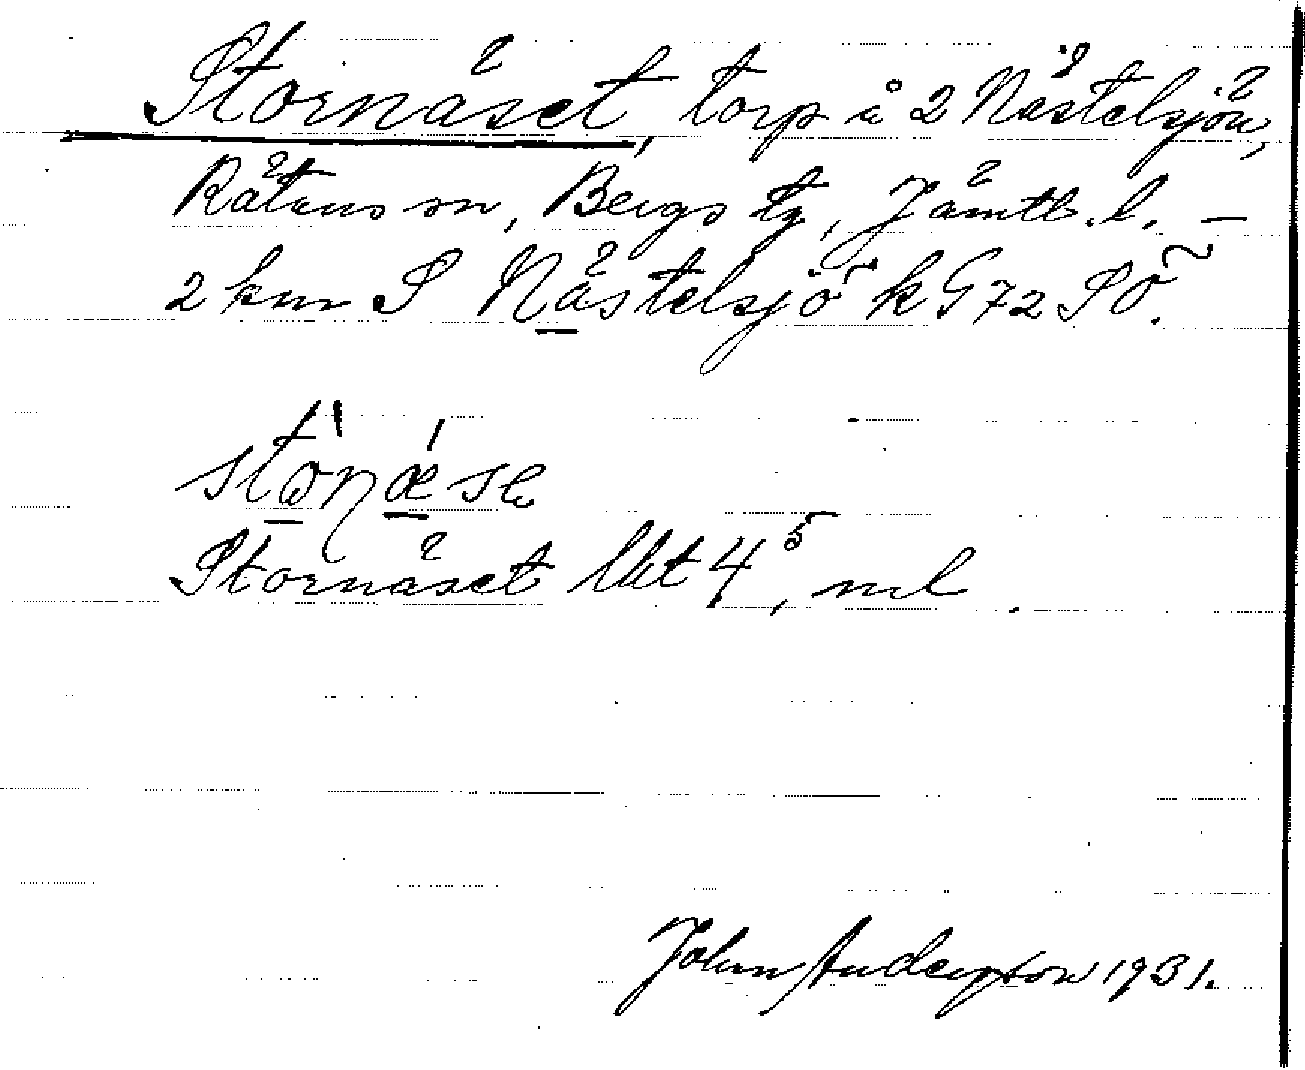 Stornäset, torp å 2 Nästelsjön,
Rätans sn, Bergs tg, Jämtl. l. –
2 km S Nästelsjö k G72 SÖ.
stōṇǣse
Stornäset lkt 4⁵, ml
John Andersson 1931.